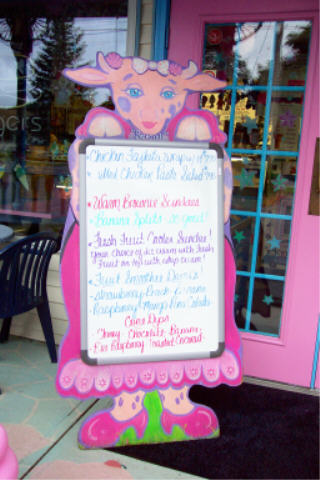 Chicken Fajita Wrap
Chicken Pasta Salad
Warm Brownie Sundaes
Banana Splits - so good!
Fresh Fruit Cooler Sundae!
Your choice of ice cream with fresh
Fruit on top with whip cream!
Fruit Smoothee Drinks!
Strawberry-Peach-Banana
Raspberry Mango Pina Colada
Cone Dips
Cherry - Chocolate - Banana
Blue Raspberry Toasted Coconut
gers